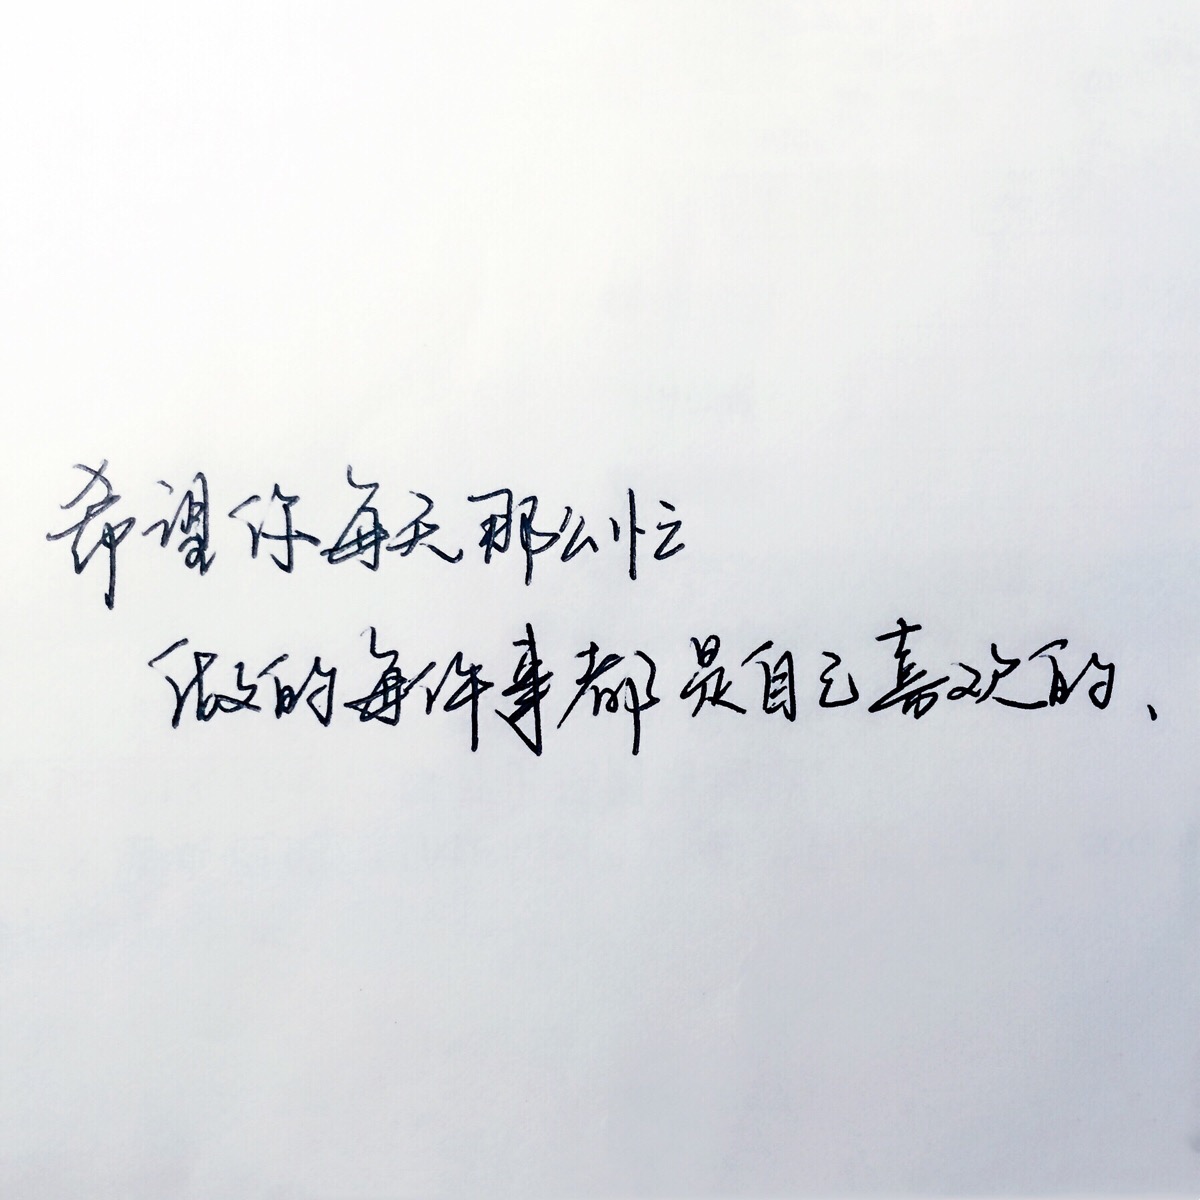 希望你每天那么忙
做的每件事都是自己喜欢的、